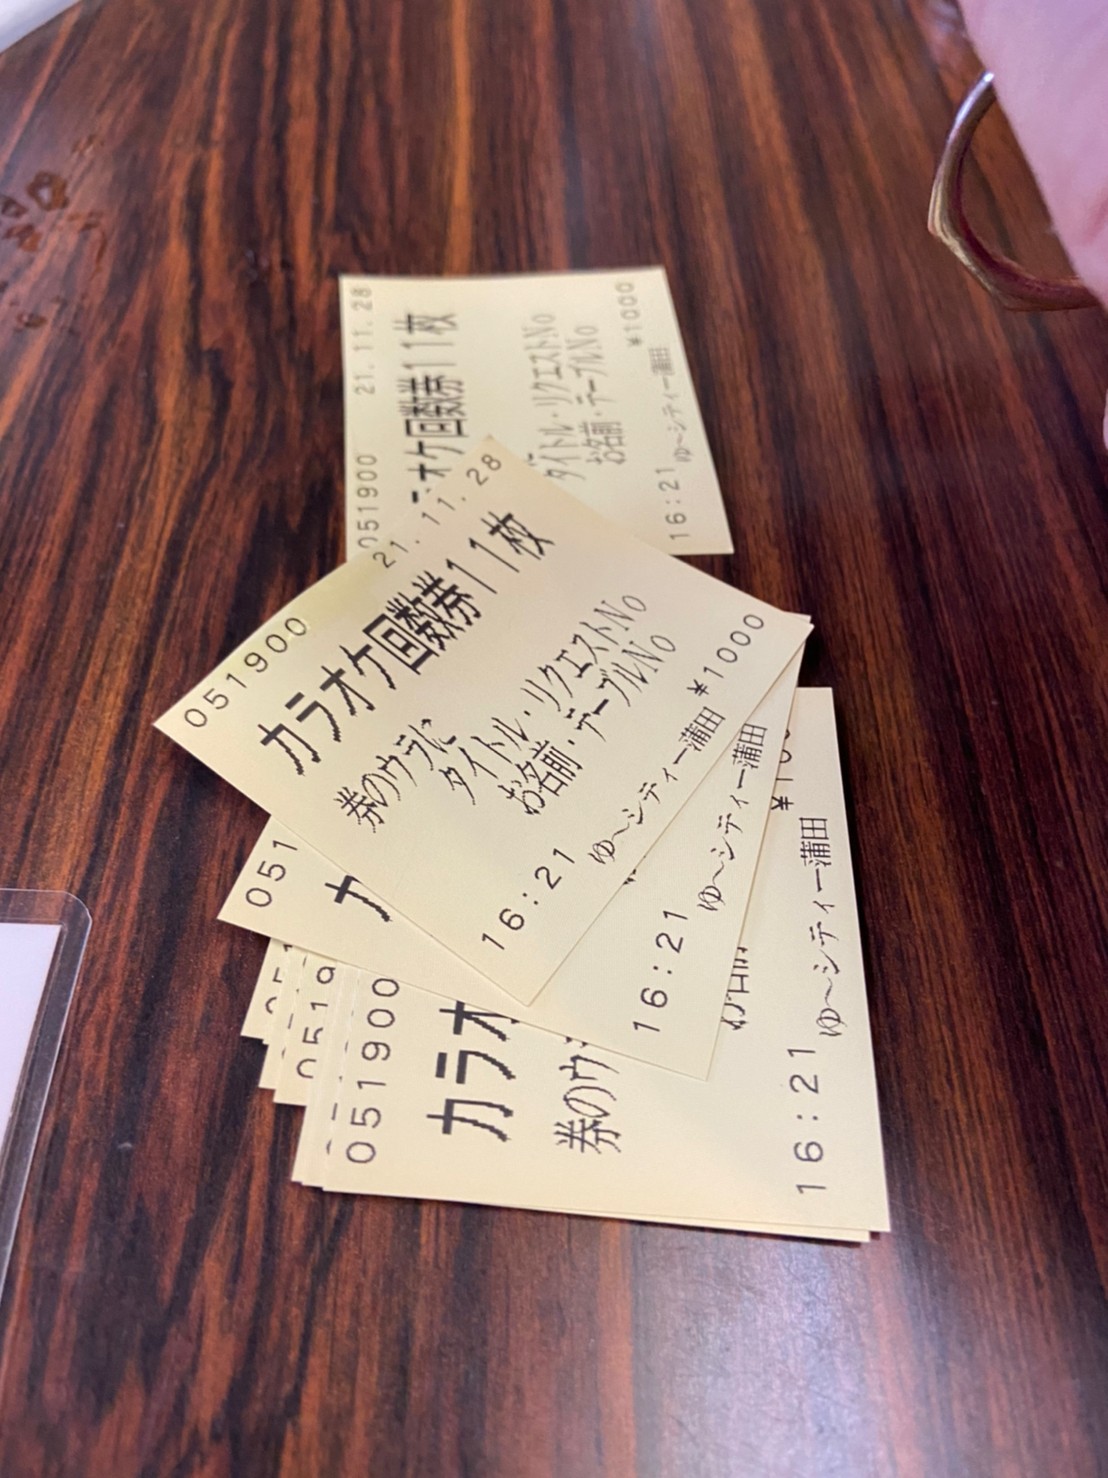 051900 21.11.28
オケ回数券11枚
タイトル・リクエストNo
お名前・テーブルNo
¥1000
16:21 ゆ～シティー蒲田
051900 21.11.28
カラオケ回数券11枚
券のウラに
タイトル・リクエストNo
お名前・テーブルNo
¥1000
16:21 ゆ～シティー蒲田
051
カ
16:21 ゆ～シティー蒲田
051
0519
051900
カラオ
券のウ
16:21 ゆ～シティー蒲田